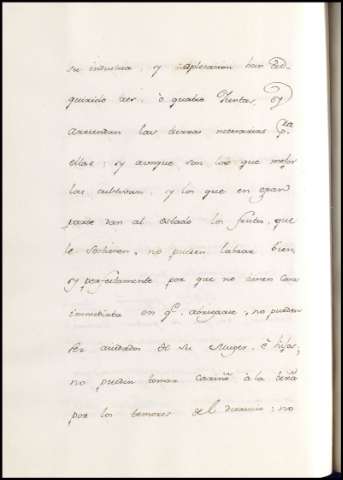 su industria, y aplicacion han ad-
quirido tres, ò quatro Juntas, y
arriendan las tierras necesarias pta
ellas: y aunque son los que mejor
las cultivan, y los que en gran
parte dan al estado los frutos, que
le sostienen, no pueden labrar bien,
y perfectamente por que no tienen Casa
immediata en qe. abrigarse, no pueden
ser aiudados de su Muger, è hijos,
no pueden tomar cariño à la tierra
por los temores del desaucio: no